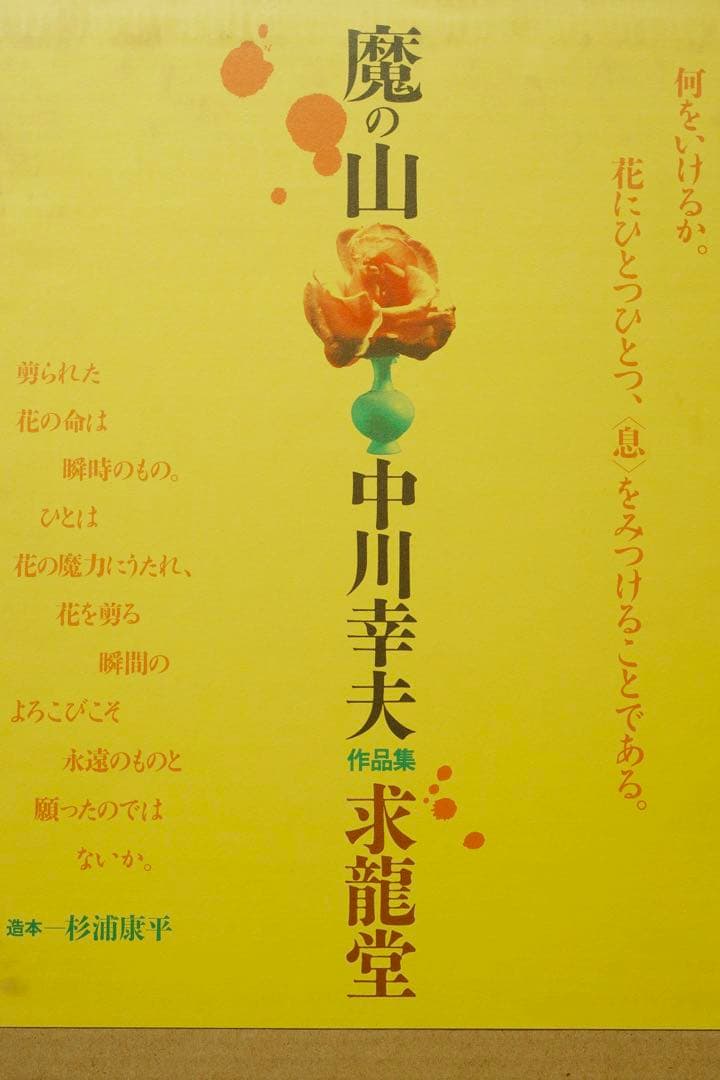 何をいけるか。
花にひとつひとつ、〈息〉をみつけることである。
魔の山
中川幸夫
作品集
求龍堂
剪られた
花の命は
瞬時のもの。
ひとは
花の魔力にうたれ、
花を剪る
瞬間の
よろこびこそ
永遠のものと
願ったのでは
ないか。
造本—杉浦康平